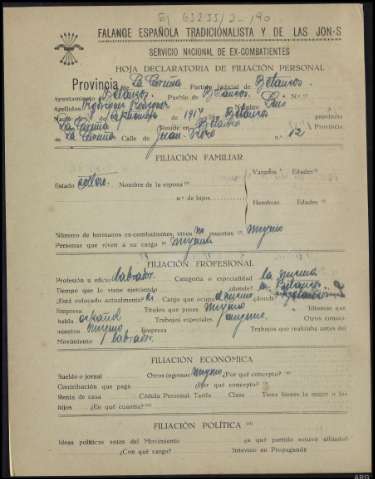 FALANGE ESPAÑOLA TRADICIONALISTA Y DE LAS JON-S
SERVICIO NACIONAL DE EX-COMBATIENTES
HOJA DECLARATORIA DE FILIACIÓN PERSONAL
Provincia de La Coruña Partido judicial de Betanzos
Ayuntamiento Betanzos. Pueblo de Betanzos. N.º
Apellidos Rodriguez Nombre Luis
de 1917 en Betanzos provincia
La Coruña Reside en Betanzos Provincia
La Coruña Calle de n.º 12
FILIACIÓN FAMILIAR
Estado soltero. Nombre de la esposa
Varones Edades
n.º de hijos
Hembras Edades
Número de hermanos ex-combatientes, vivos no muertos ninguno
Personas que viven a su cargo ninguna
FILIACIÓN PROFESIONAL
Profesión u oficio labrador. Categoría o especialidad la misma
Tiempo que lo viene ejerciendo ¿dónde? en Betanzos
¿Está colocado actualmente? Si Cargo que ocupa el mismo ¿dónde?
Empresa Títulos que posee ninguno Idiomas que
habla español Trabajos especiales ninguno Otros conoci-
mientos ninguno Empresa Trabajos que realizaba antes del
Movimiento labrador.
FILIACIÓN ECONÓMICA
Sueldo o jornal Otros ingresos ninguno ¿Por qué concepto?
Contribución que paga ¿Por qué concepto?
Renta de casa Cédula Personal Tarifa Clase Tiene bienes la mujer o los
hijos ¿En qué cuantía?
FILIACIÓN POLÍTICA
Ideas políticas antes del Movimiento en qué partido estuvo afiliado
¿Con qué cargo? Intervino en Propaganda